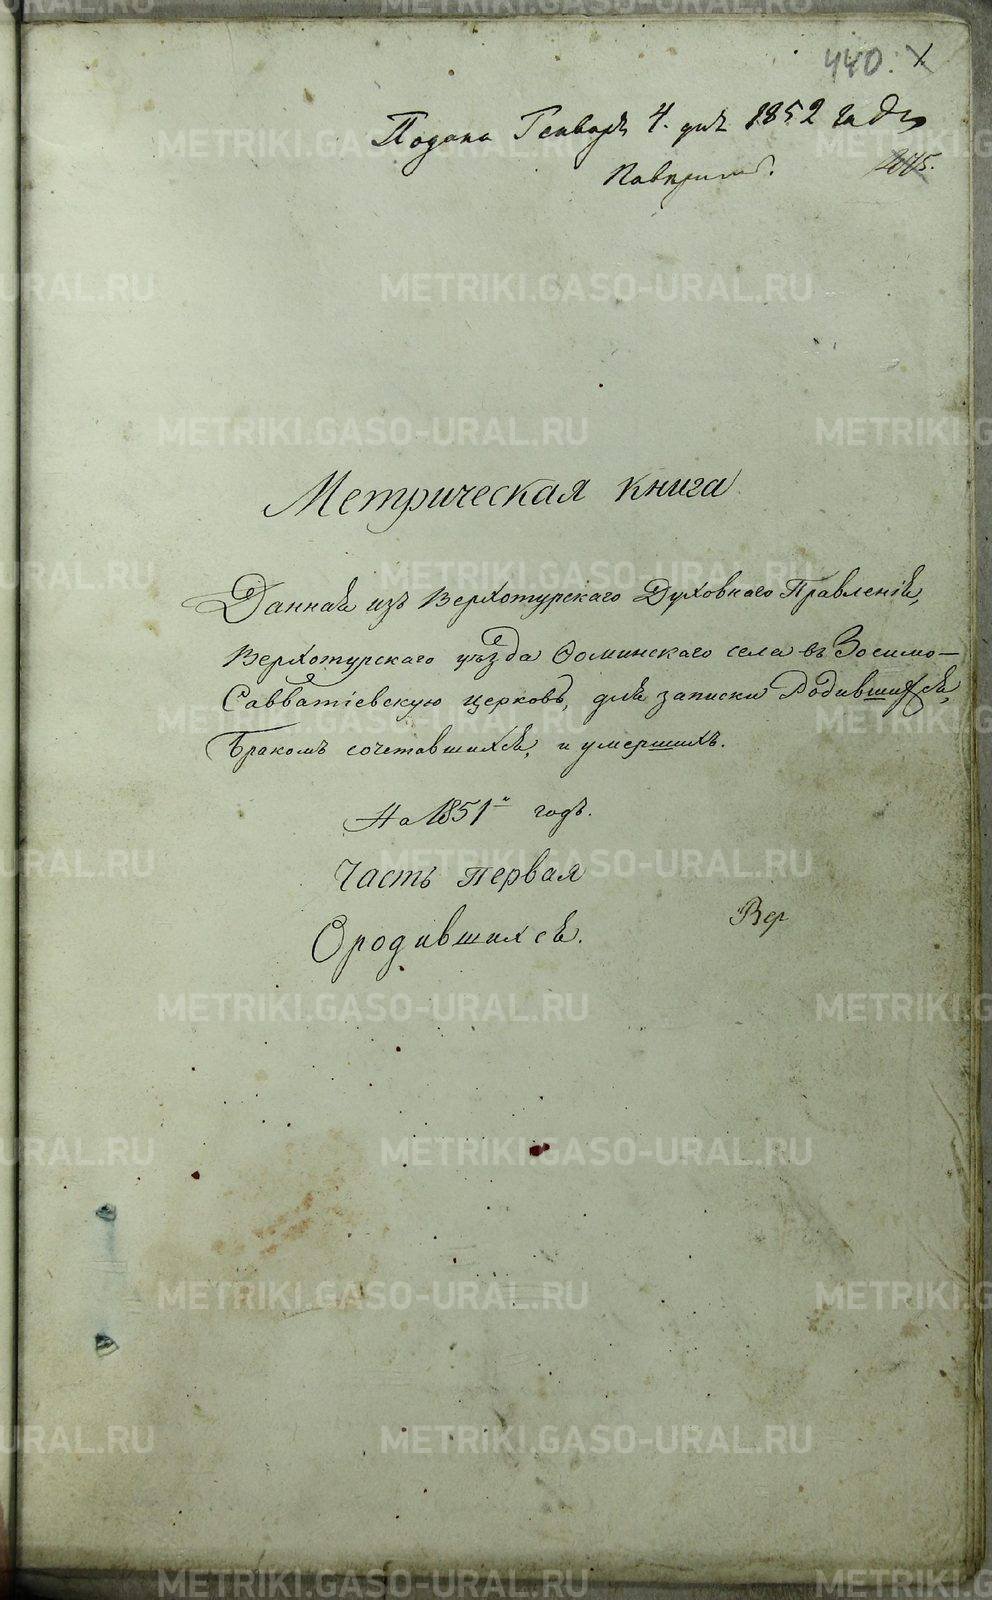 440.
Подана Генваря 4. дня 1852 года
245.
Метрическая книга
Данная изъ Верхотурскаго Духовнаго Правленія,
Верхотурскаго уѣзда Ѳоминскаго села въ Зосимо-
Савватіевскую церковь, для записки Родившихся,
Бракомъ сочетавшихся, и умершихъ.
На 1851й годъ.
Часть первая
Вер
О родившихся.
METRIKI.GASO-URAL.RU